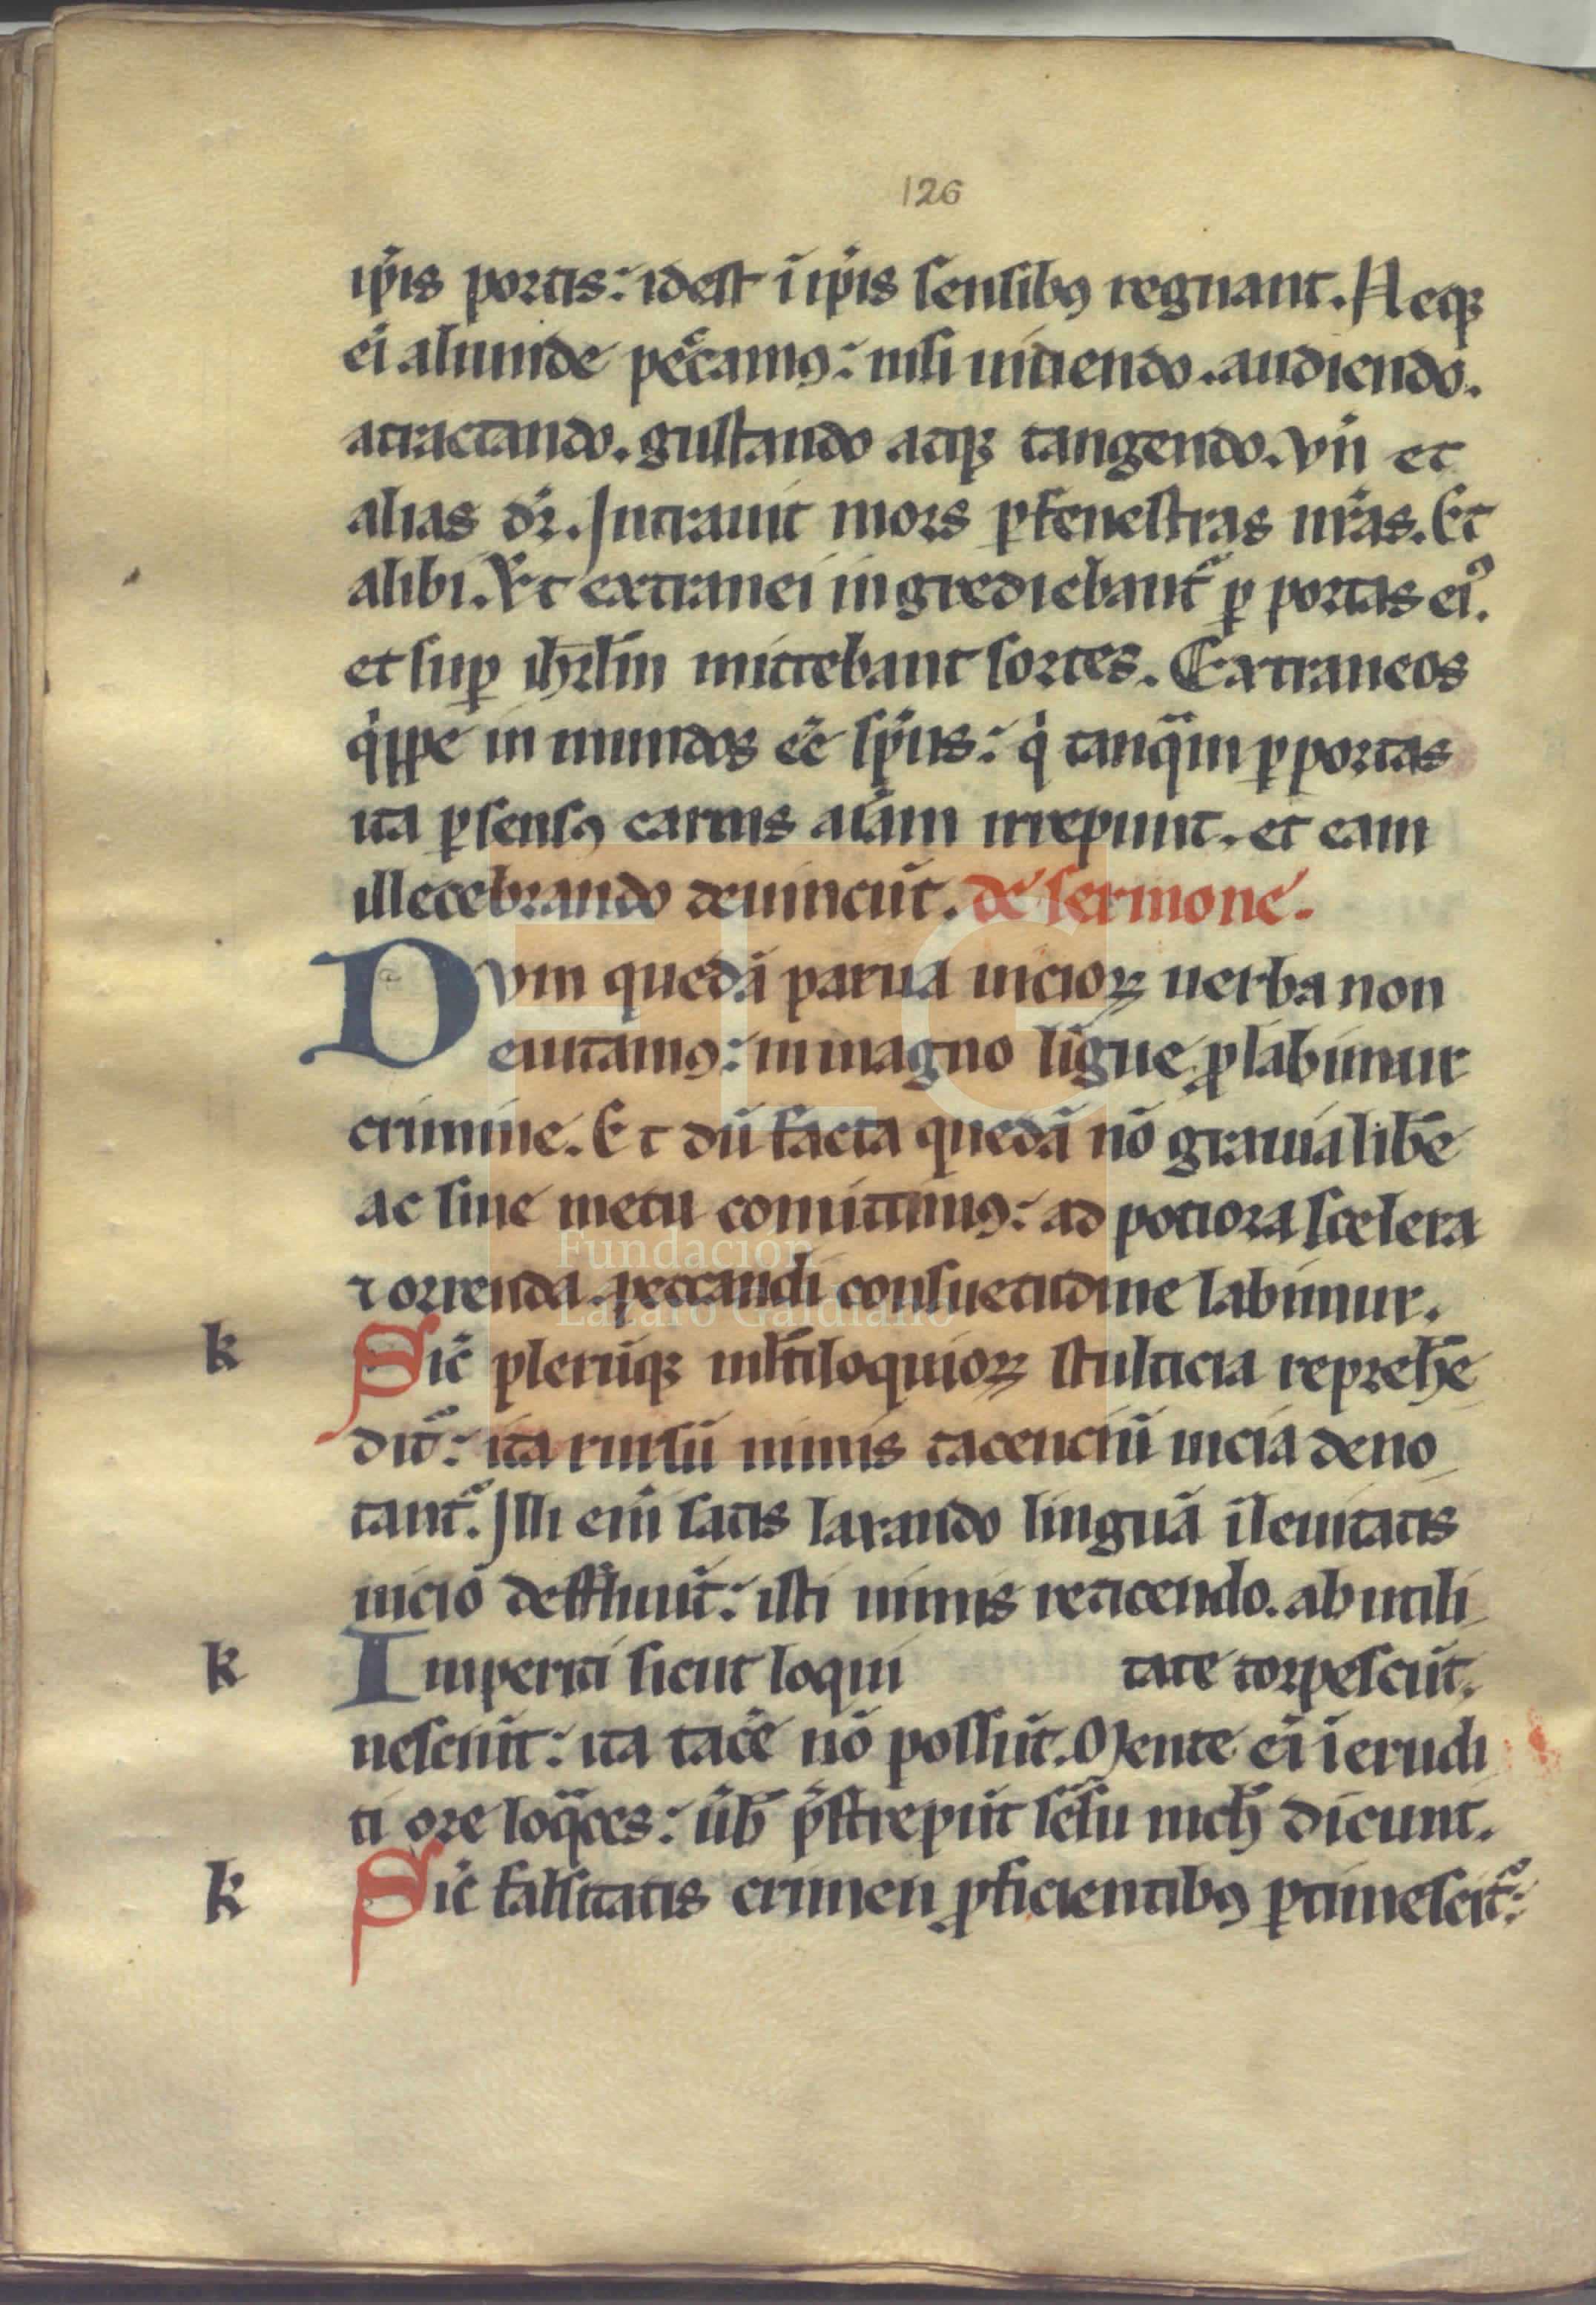 126
ip̃is portis: idest ĩ ip̃is sensibꝯ regnant. Neqꝫ
ei᷑ aliunde peccamꝯ: nisi uidendo. audiendo.
atractando. gustando atqꝫ tangendo. vñ et
alias dr̃. Intrauit mors ꝑ fenestras nr̃as. Et
alibi. Et extranei ingrediebant᷑ ꝑ portas eiꝰ.
et suꝑ ihrl̃m mittebant sortes. Extraneos
qͥppe in mundos eẽ sp̃us: qͥ tanqᷓm ꝑ portas
ita ꝑ sensꝯ carnis aĩam irrepunt. et eam
illecebrando deuincũt. de sermone.
Dvm quedã parua uicioꝝ uerba non
euitamꝯ: in magno lĩgue ꝓlabimur
crimine. Et dũ facta quedã nõ grauia libẽ
ac sine metu comittimꝯ: ad potiora scelera
⁊ orrenda peccandi consuetudine labimur.
k
Sic̃ plerũqꝫ ml̃tiloquioꝝ stulticia repreh̃e
dit᷑: ita rursũ nimis tacenciũ uicia deno
tant᷑. Illi eni᷑ satis laxando linguã ĩ leuitatis
uicio defluũt: isti nimis reticendo. ab utili
k
Imperiti sicut loqui tate torpescũt.
nesciũt: ita tacẽ nõ possũt. Mente ei᷑ ĩ erudi
ti ore loqᷓces: ũb̃ p̃strepũt sẽsu nich̃ dicunt.
k
Sic̃ falsitatis crimen ꝓficientibꝯ ꝑtimescit᷑:
Fundación
Lázaro Galdiano
FLG